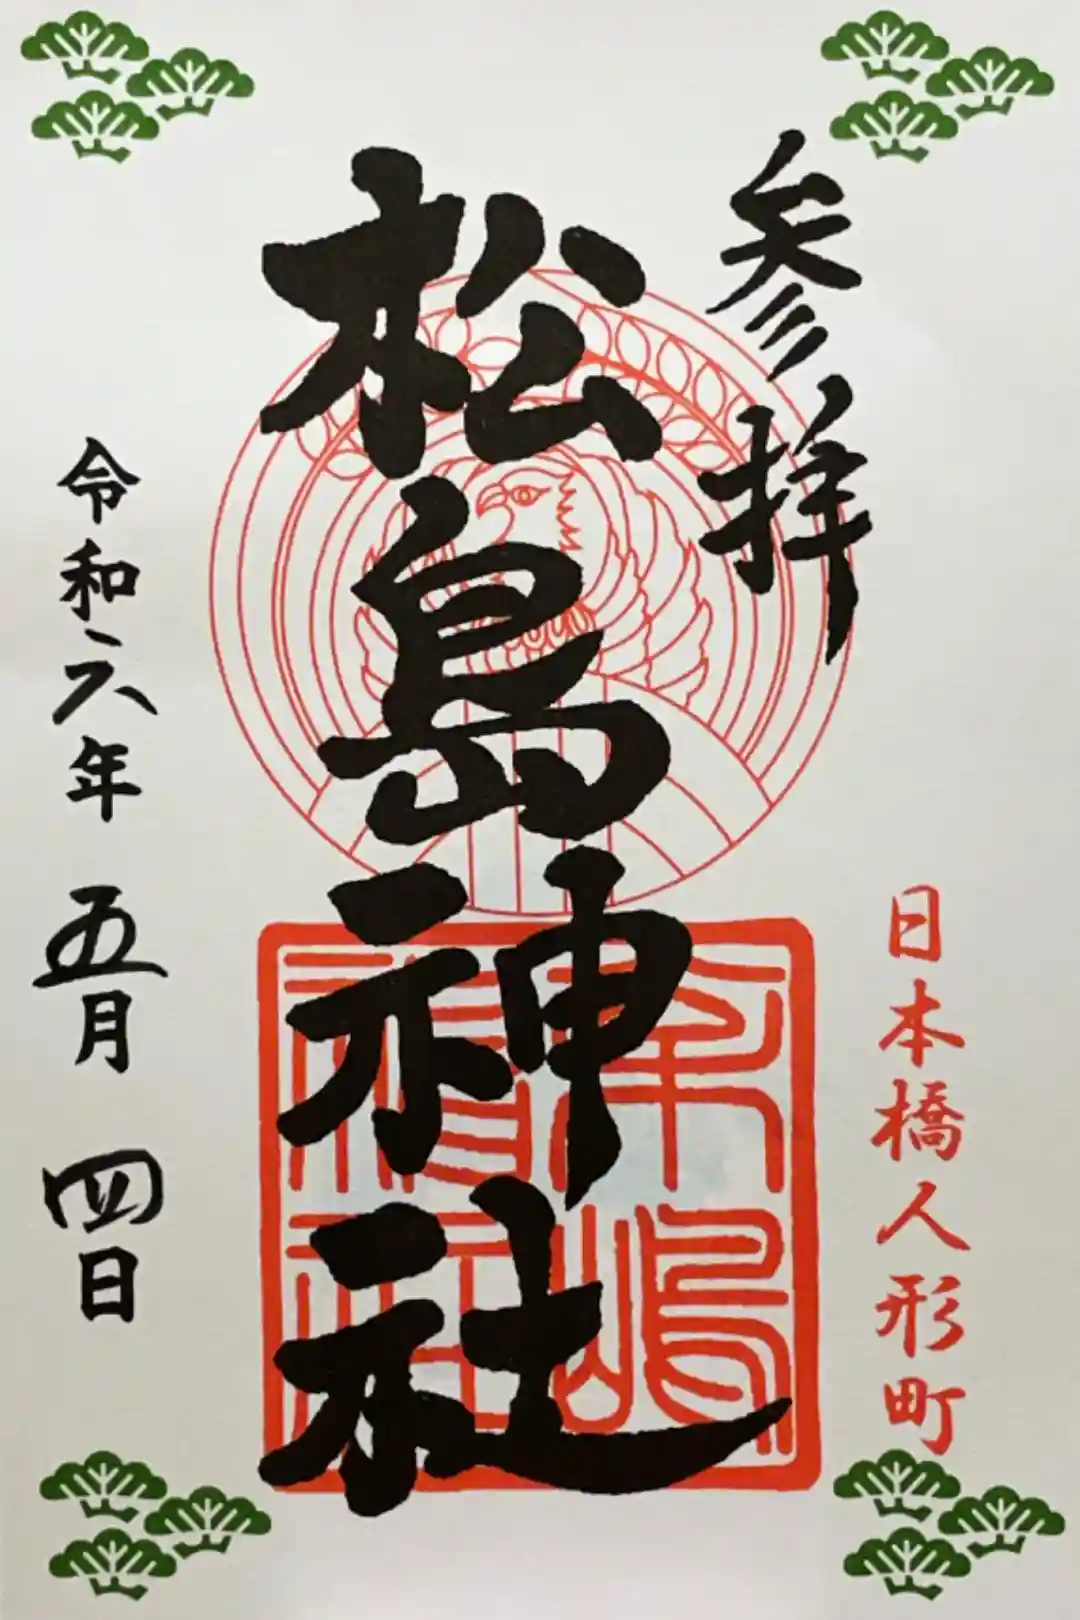 参拝
日本橋人形町
松島神社
令和六年 五月 四日